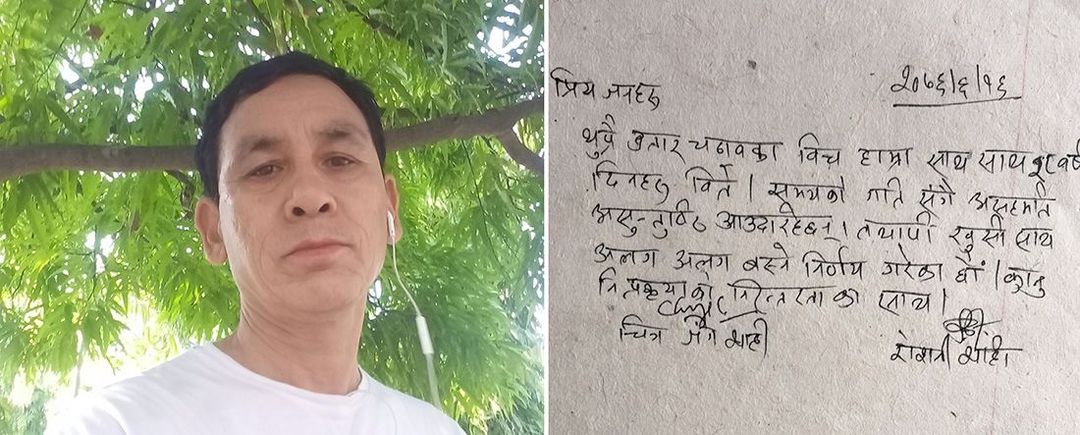 प्रिय जनहरु २०७६/६/१६
थुप्रै उतार चढावका विच हाम्रा साथ साथ वर्ष
दिनहरु विते । समयको गति संगै असहमति
असन्तुष्ठि आउदारहेछन् । तथापी खुसी साथ
अलग अलग बस्ने निर्णय गरेका छौं । कानुनि
प्रकृयाको निरन्तरता का साथ ।
चित्र जंग शाही रोशनी शाही